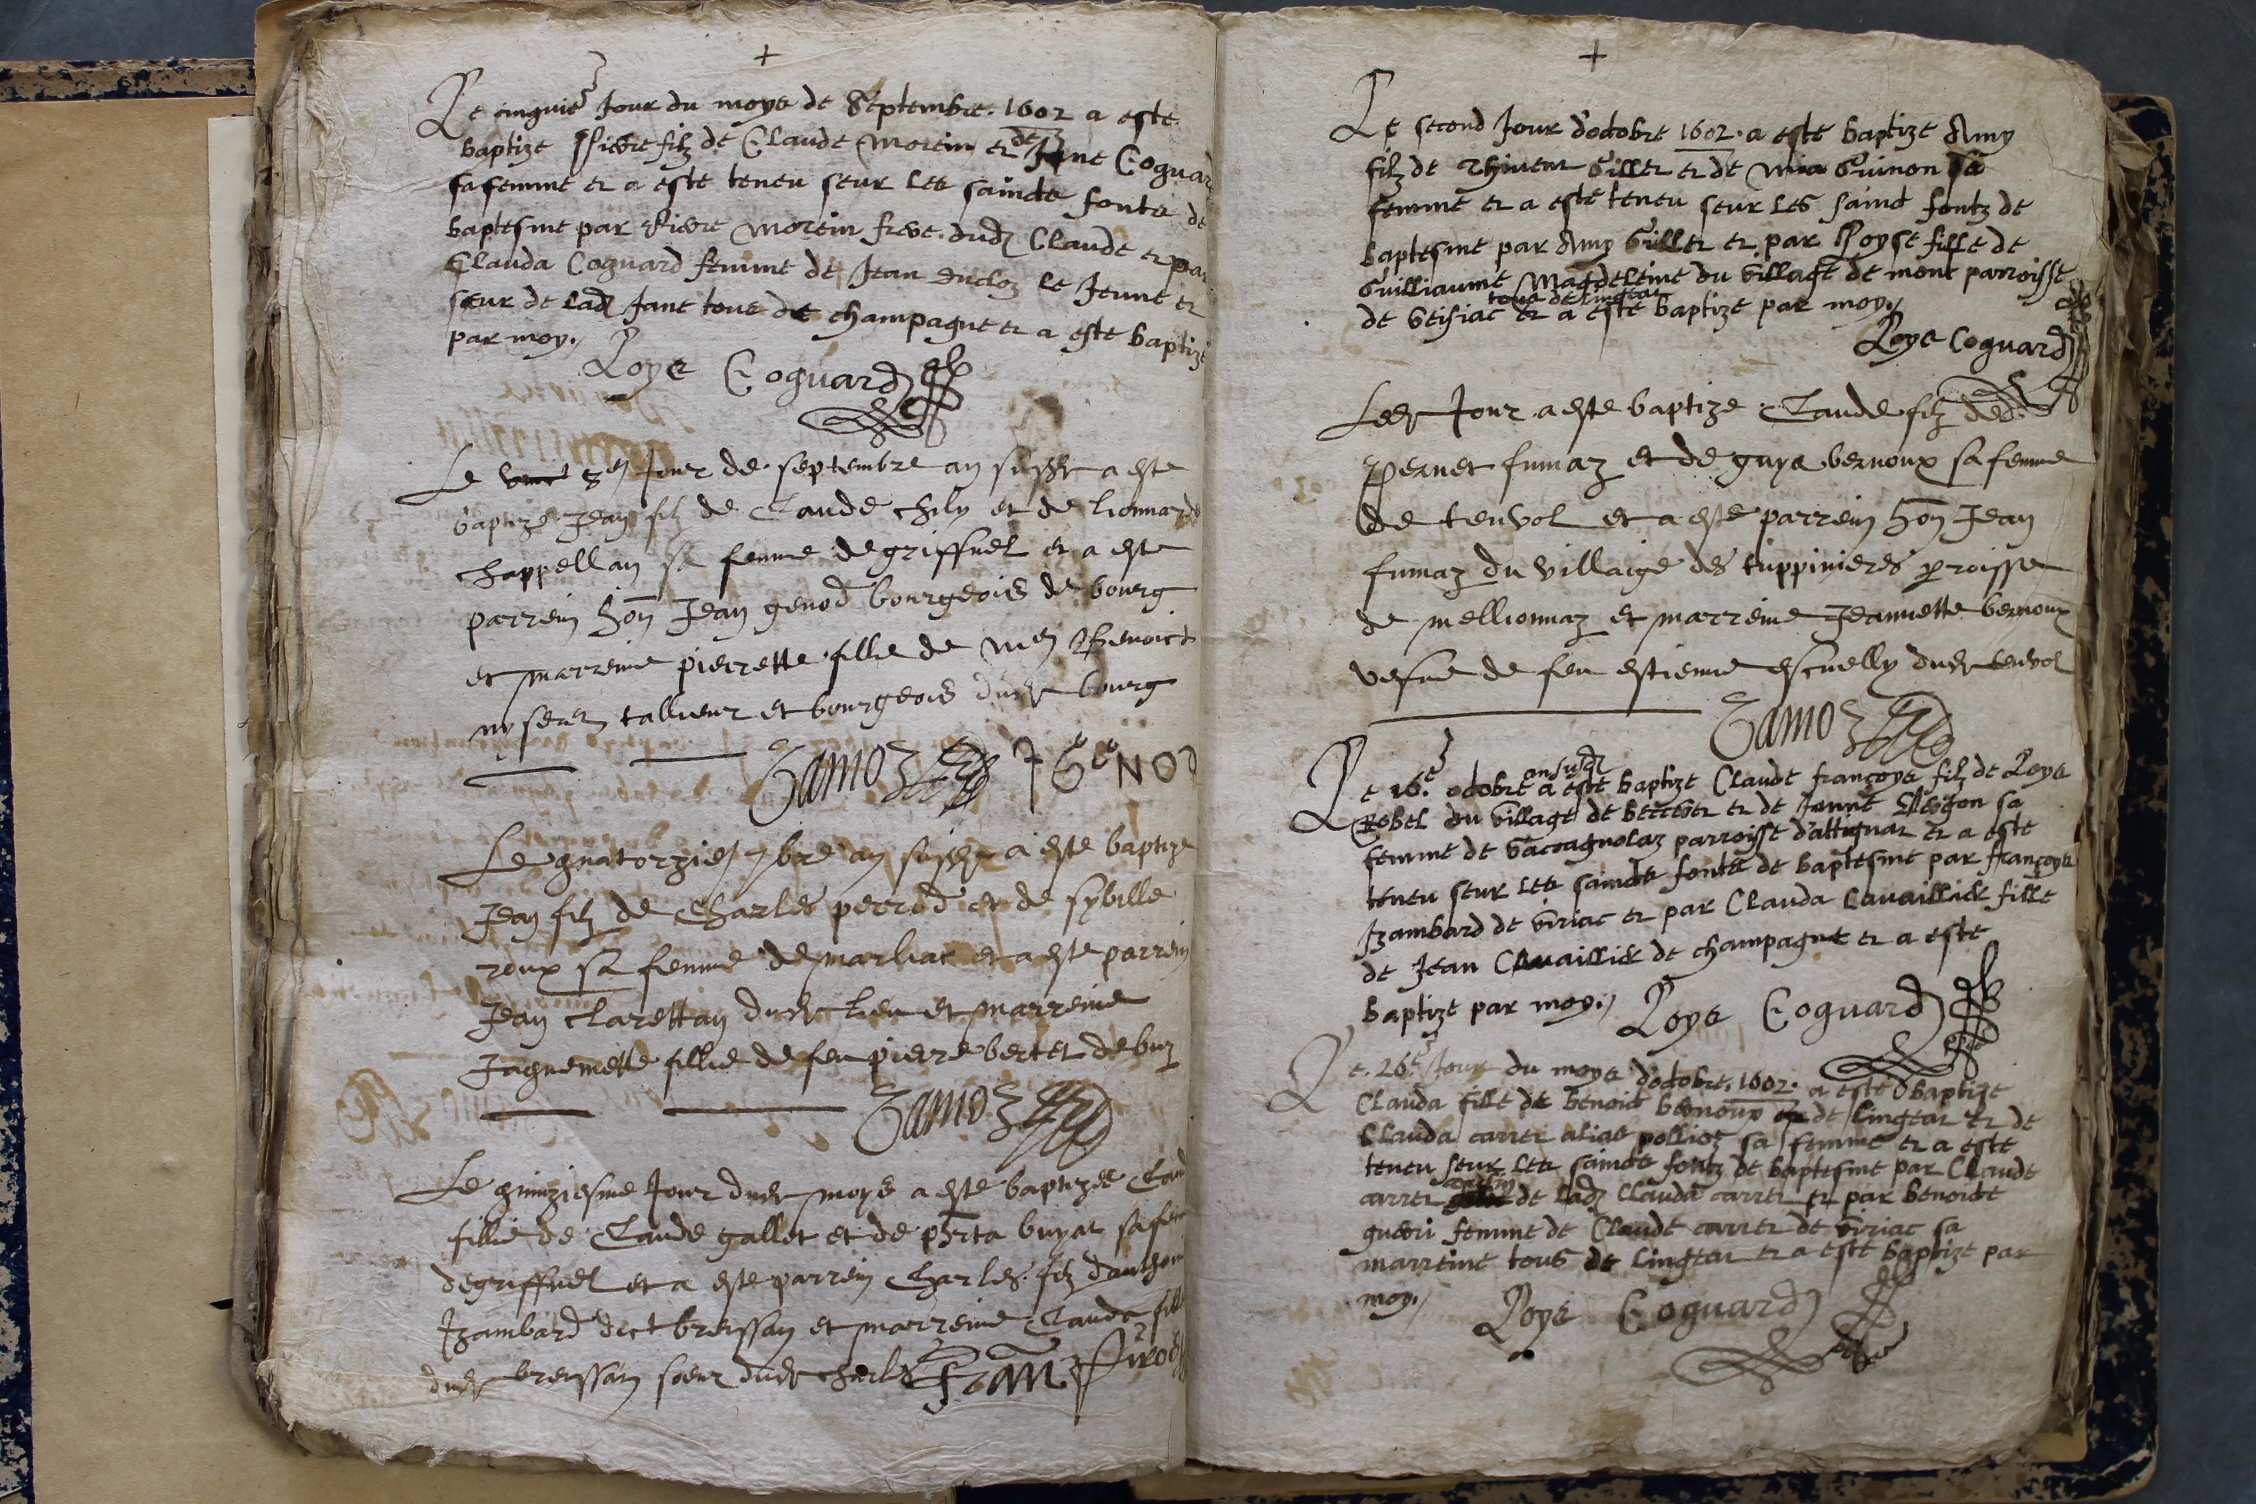 +
Le cinquie Jour du moys de Septembre. 1602 a este
baptize Pierre filz de Claude Morein et de Jane Coguard
sa femme et a este teneu seur les saincts fonts de
baptesme par Pierre Morein frere dudz Claude et par
Clauda Coguard femme de Jean ducloz le Jeune et
seur de ladz Jane tous de champagne et a este baptizé
par moy.
Loys Coguard
Le 8e Jour de septembre an susdt a este
baptizé Jean filz de Claude chily et de lionnarde
chappellan sa femme de griffuel et a este
parrein hon Jean genod bourgeois de bourg
et marreine pierrette fillie de Benoict
tallieur et bourgeois dudt bourg
Zamoz J GENOD
Le quatorzie 7bre an susdt a este baptize
Jean filz de Charles perrod et de sybille
roux sa femme de marliac et a este parrein
Jean clarettan dudt lieu et marreine
Jaquemette fillie de feu pierre bertet de buz
Zamoz
Le quinziesme Jour dudt moys a este baptizee Claud
fillie de Claude gallet et de buyat sa fem
de griffuel et a este parrein Charles filz danthoin
Jzambard dict breyssan et marreine Clauda filli
dudt breyssan soeur dudt charles
+
Le second Jour d'octobre 1602. a este baptize Amy
filz de Thivent Gillet et de Mia Guinon sa
femme et a este teneu seur les sainct fontz de
baptesme par Amy Gillet et par Loyse fille de
Guilliaume Magdeleine du village de mont parroisse
de Geisiac tous de lingear et a este baptize par moy.
Loys Coguard
Ledt Jour a este baptize Claude filz de
pernet fumaz et de guya vernoux sa femme
de tenvol et a este parrein hon Jean
fumaz du villaige des tuppinieres proisse
de mellionnaz et marreine Jeannette vernoux
vefue de feu estienne escuelly dudt tenvol
Zamoz
Le 16.e octobre an susdz a este baptize Claude françoys filz de Loys
Robel du village de et de Janne sa
femme de parroisse d'attignat et a este
teneu seur les saincts fonts de baptesme par françoys
Jzambard de viriac et par Clauda Cavaillick fille
de Jean Cavaillick de champagne et a este
baptize par moy. Loys Coguard
Le. 26e Jour du moys d'octobre. 1602. a este baptize
Clauda fille de benoict bernoux de lingear et de
Clauda carrer alias polliot sa femme et a este
teneu seur les saincts fontz de baptesme par Claude
carrer de ladz Clauda carrer et par benoicte
femme de Claude carrer de viriac sa
marreine tous de lingear et a este baptize par
moy.
Loys Coguard